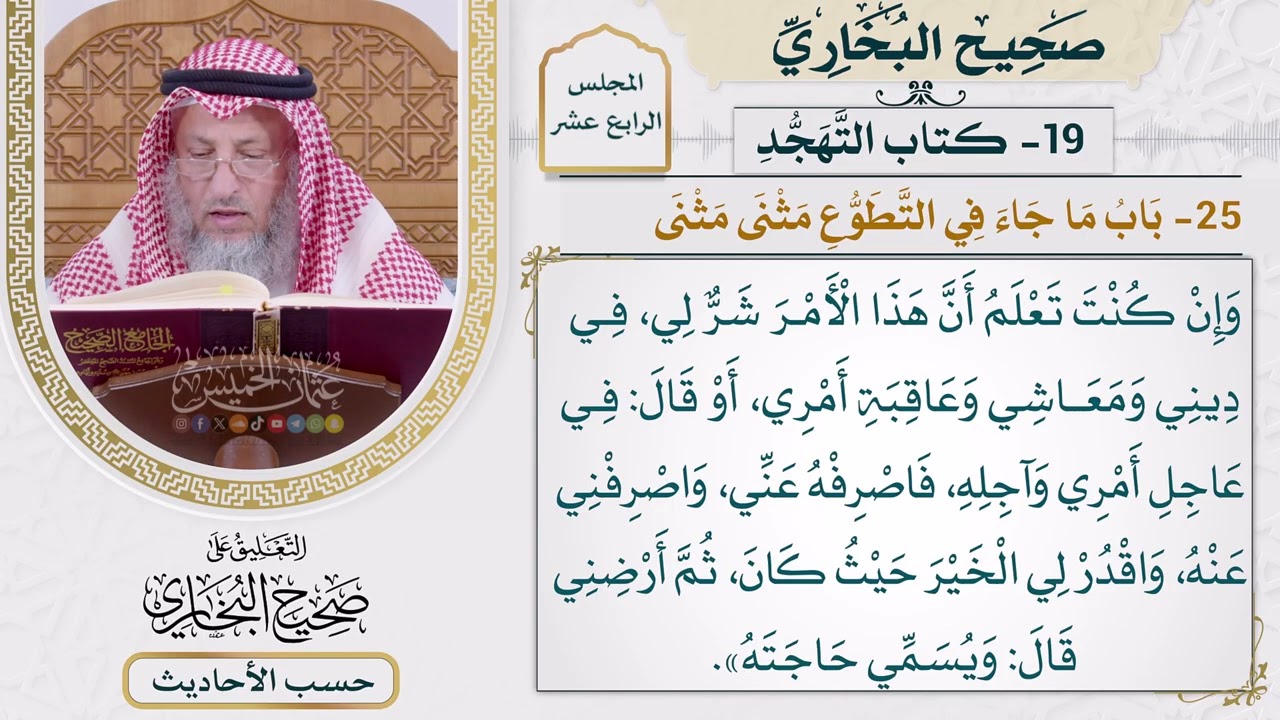 صَحِيح البُخَارِيِّ
المجلس
الرابع عشر
19- كتاب التَّهَجُّدِ
25- بَابُ مَا جَاءَ فِي التَّطَوُّعِ مَثْنَى مَثْنَى
وَإِنْ كُنْتَ تَعْلَمُ أَنَّ هَذَا الْأَمْرَ شَرٌّ لِي، فِي
دِينِي وَمَعَاشِي وَعَاقِبَةِ أَمْرِي، أَوْ قَالَ: فِي
عَاجِلِ أَمْرِي وَآجِلِهِ، فَاصْرِفْهُ عَنِّي، وَاصْرِفْنِي
عَنْهُ، وَاقْدُرْ لِي الْخَيْرَ حَيْثُ كَانَ، ثُمَّ أَرْضِنِي
قَالَ: وَيُسَمِّي حَاجَتَهُ».
الجامع الصحيح
عثمان الخميس
التَّعْلِيقُ عَلَى
صَحِيحُ البُخَارِي
حسب الأحاديث